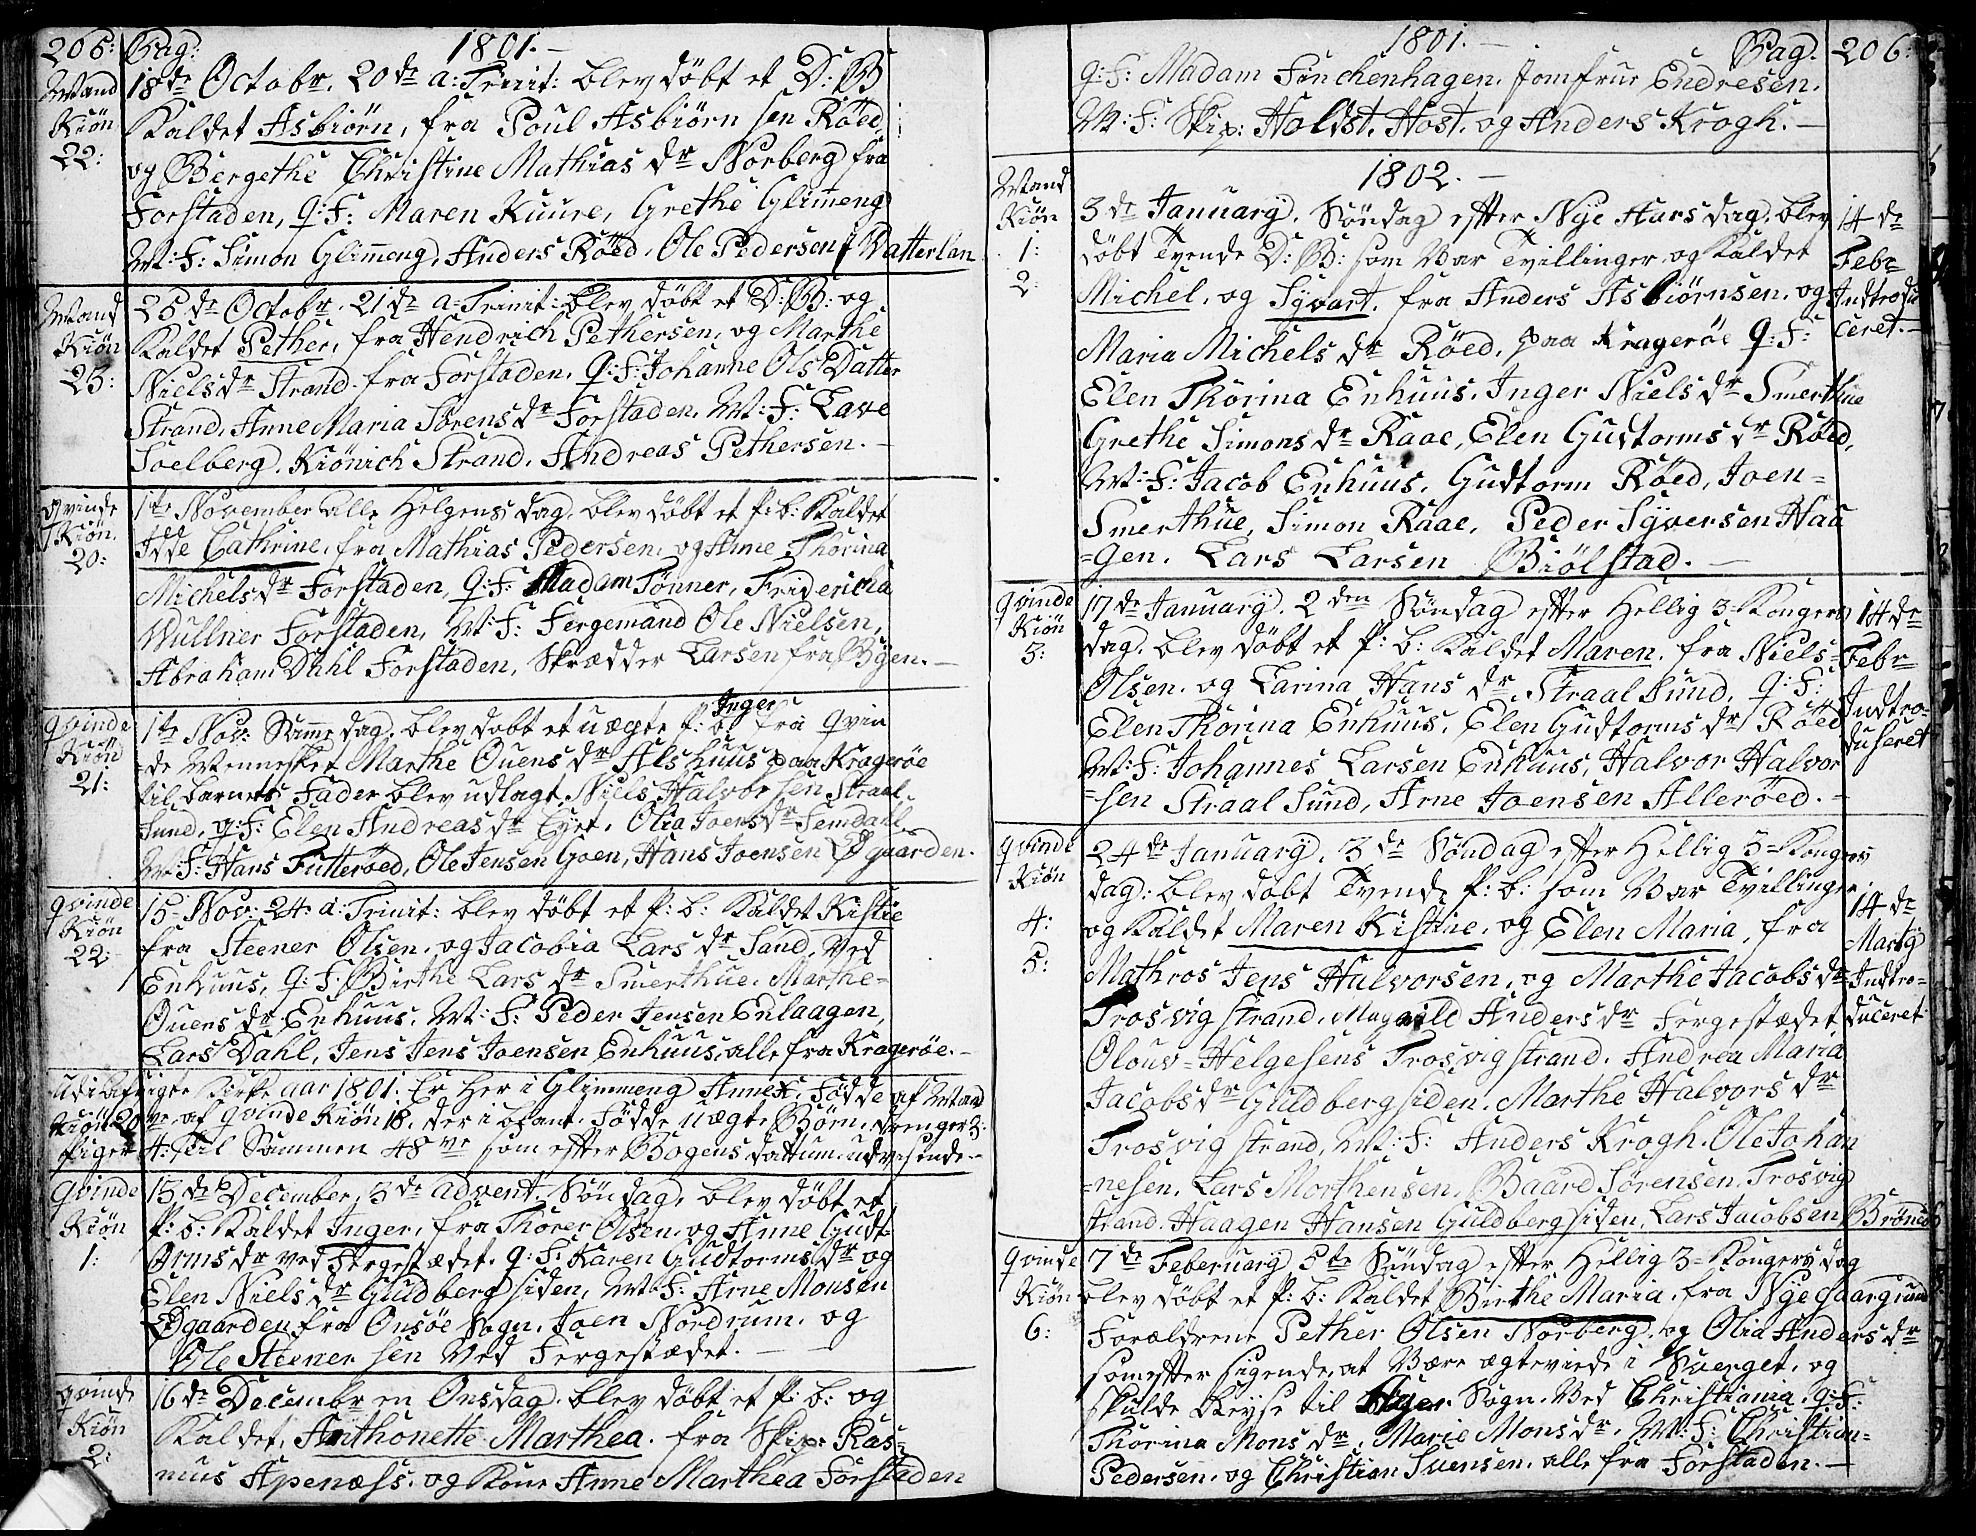 205: Pag: 1801. —
Mand Kiøn 22:
18de Octobr. 20de a: Trinit: blev døbt et D: B
Kaldet Asbiørn, fra Poul Asbiørn sen Røed
og Bergethe Christine Mathias dr Norberg fra
Forstaden, q: F: Maren Kuure, Grethe Glim̄eng
M: F: Simon Glim̄eng, Anders Røed. Ole Pedersen Vatterlan
Mand Kiøn 23:
25de Octobr. 21de a: Trinit: blev døbt et D: B: og
Kaldet Pether, fra Hendrich Pethersen, og Marthe
Niels dr Strand fra Forstaden. q: F: Johanne Ols Datter
Strand, Anne Maria Sørens dr Forstaden. M: F: Lave
Soelberg. Kiønich Strand. Andreas Pethersen. —
Qvinde Kiøn. 20:
1te November alle Helgens dag. blev døbt et P: b: Kaldet
Idse Cathrine. fra Mathias Pedersen. og Anne Thorina
Michels dr Forstaden, q: F: Madam Tønner, Fridericha
Wullner Forstaden, M: F: Fergemand Ole Nielsen,
Abraham Dahl Forstaden, Skrædder Larsen fra Byen. —
Qvinde Kiøn 21:
1te Nov: Samme dag. blev døbt et uægte P: b: Inger fra qvin
de Mennesket Marthe Ouens dr Alshuus paa Kragerøe
til barnets Fader blev udlagt. Niels Halvor sen Straal
Sund, q: F: Elen Andreas dr Eyet. Olia Joens dr Femdahl
M: F: Hans Futterøed, Ole Jensen Goen, Hans Joensen Øgaarden.
Qvinde Kiøn 22
15 Nov: 24 a: Trinit: blev døbt et P: b: Kaldet Kistie
fra Steener Olsen. og Jacobia Lars dr Sand, Ved
Enhuus, q: F: Birthe Lars dr Smerthue. Marthe=
Ouens dr Enhuus. M: F: Peder Jensen Enlaagen,
Lars Dahl, Jens Jens Joensen Enhuus, alle fra Kragerøe. —
Udi Kirke aar 1801. Er Her i Glimmeng Annex, Fødde af Mand
Kiøn 20ve. af qvinde Kiøn 18. der i blant Fødde uægte Børn. drenger 3:
Piger 4: Til Sammen 48ve som efter Bogens dattum udvisende. —
Qvinde Kiøn 1:
13de December. 3de advent. Søndag. blev døbt et
P: b: Kaldet Inger. fra Thorer Olsen. og Anne Gudt-
orms dr ved Fergestædet. q: F: Karen Gudtorms dr og
Elen Niels dr Guldberg siden, M: F: Arne Monsen
Øgaarden fra Onsøe Sogn. Joen Nordrum. og
Ole Steener sen Ved Fergestædet. —
Qvinde Kiøn 2:
16de Decembr en Onsdag. blev døbt et P: b: og
Kaldet. Anthonette Marthea. fra Skip: Ras=
mus Apenæss. og Kone Anne Marthea Forstaden
1801. — Pag. 206:
q: F: Madam Finchenhagen. Jomfrue Endresen.
M: F: Skip: Holdst. Høst. og Anders Krogh. —
1802. —
Mand Kiøn 1: 2:
3de January. Søndag efter Nye Aars dag. blev
døbt Tvende D: B: som Var Tvillinger og Kaldet
Michel. og Syvart. fra Anders Asbiørnsen. og
Maria Michels dr Røed, paa Kragerøe q: F:
Elen Thorina Enhuus. Inger Niels dr Smerthue
Grethe Simons dr Raae, Elen Gudtorms dr Røed,
M: F: Jacob Enhuus, Gudtorm Røed, Joen=
Smerthue, Simon Raae, Peder Syversen Haa
=gen. Lars Larsen Biølstad. —
14de Febr Indtroduceret. —
Qvinde Kiøn 3:
17de January. 2den Søndag efter Hellig 3= Kongers
dag. blev døbt et P: b: Kaldet Maren. fra Niels=
Olsen. og Larina Hans dr Straal Sund. q: F:
Elen Thorina Enhuus. Elen Gudtorms dr Røed
M: F: Johannes Larsen Enhuus, Halvor Halvor
=sen Straal Sund, Arne Joensen Allerøed. =
14de Febr Indtroduseret
Qvinde Kiøn 4: 5:
24de January. 3de Søndag efter Hellig 3= Kongers
dag: blev døbt Tvende P: b: som Var Tvillinger
og Kaldet Maren Kistine, og Elen Maria, fra
Mathros Jens Halvorsen, og Marthe Jacobs dr
Trosvig strand, Magnild Anders dr Fergestædet
Olouv= Helgesens Trosvig strand. Andrea Maria
Jacobs dr Guldberg siden. Marthe Halvors dr
Trosvig strand, M: F: Anders Krogh. Ole Johan
=nesen, Lars Morthensen. Baard Sørensen. Trosvig
strand. Haagen Hansen Guldberg siden, Lars Jacobsen
14de Marty Indtroduceret
Qvinde Kiøn 6:
7de Februarij 5te Søndag efter Hellig 3= Kongers dag
blev døbt et P: b: Kaldet Birthe Maria. fra Nyegaargrund
Forældrene Pether Olsen Norberg. og Olia Anders dr
som efter sigende, at Være ægteviede i Sverget. og
skulde Reyse til Ager Sogn. Ved Christiania. q: F:
Thorina Mons dr, Marie Mons dr. M: F: Christian=
Pedersen. og Christian Svensen. alle fra Forstaden. —